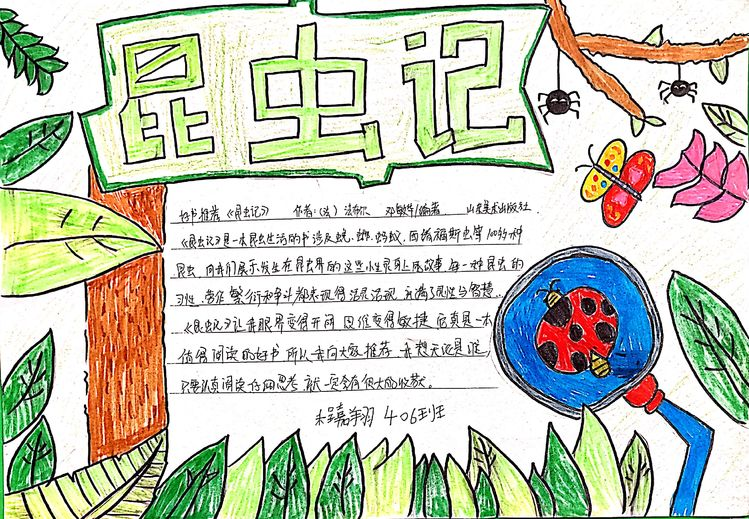 昆虫记
好书推荐《昆虫记》 作者:(法)法布尔 邓敏华/编著 山东美术出版社.
《昆虫记》是一本昆虫生活的书涉及蜣、螂、蚂蚁、西塔福斯虫等100多种
昆虫,向我们展示发生在昆虫界的这些小性灵身上的故事每一种昆虫的
习性、劳作、繁衍和争斗都表现得活灵活现,充满了灵性与智慧..
《昆虫记》让我眼界变得开阔,思维变得敏捷它真是一本
值得阅读的好书所以我向大家推荐.我想无论是谁,
只要认真阅读仔细思考就一定会有很大的收获。
嘉翔 406班